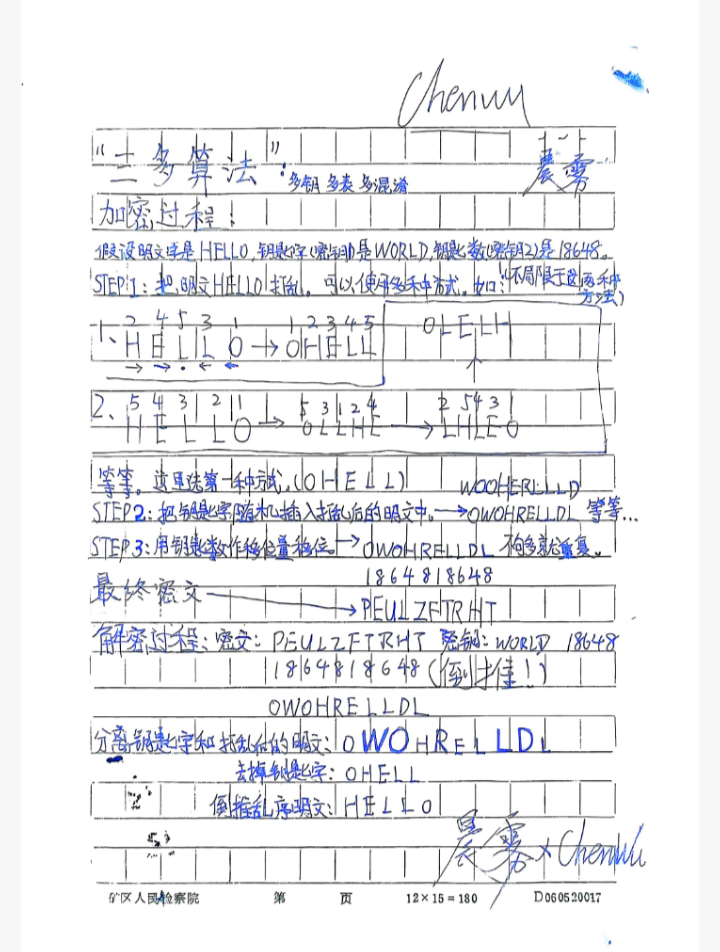 Chenwu
"三多算法": 多钥 多表 多混淆
晨雾
加密过程:
假设明文字是HELLO,钥匙字(密钥1)是WORLD,钥匙数(密钥2)是18648。
STEP1:把明文HELLO打乱。可以使用多种方式。如:(不局限于这两种方法)
2 4 5 3 1 1 2 3 4 5
1、HELLO→OHELL OLELH
5 4 3 2 1 5 3 1 2 4 2 5 4 3 1
2、HELLO→OLLHE→LHLEO
等等。这里选第一种方式。(OHELL)
WOOHERLLLD
STEP2:把钥匙字随机插入打乱后的明文中。→OWOHRELLDL 等等...
STEP3:用钥匙数作移位量移位。→OWOHRELLDL 不够多就重复。
1864818648
最终密文→PEULZFTRHT
解密过程:密文:PEULZFTRHT 密钥:WORLD 18648
1864818648(倒推!)
OWOHRELLDL
分离钥匙字和打乱后的明文:OWOHRELLDL
去掉钥匙字:OHELL
倒推乱序明文:HELLO
晨雾×Chenwu
矿区人民检察院 第 页 12×15=180 D060520017